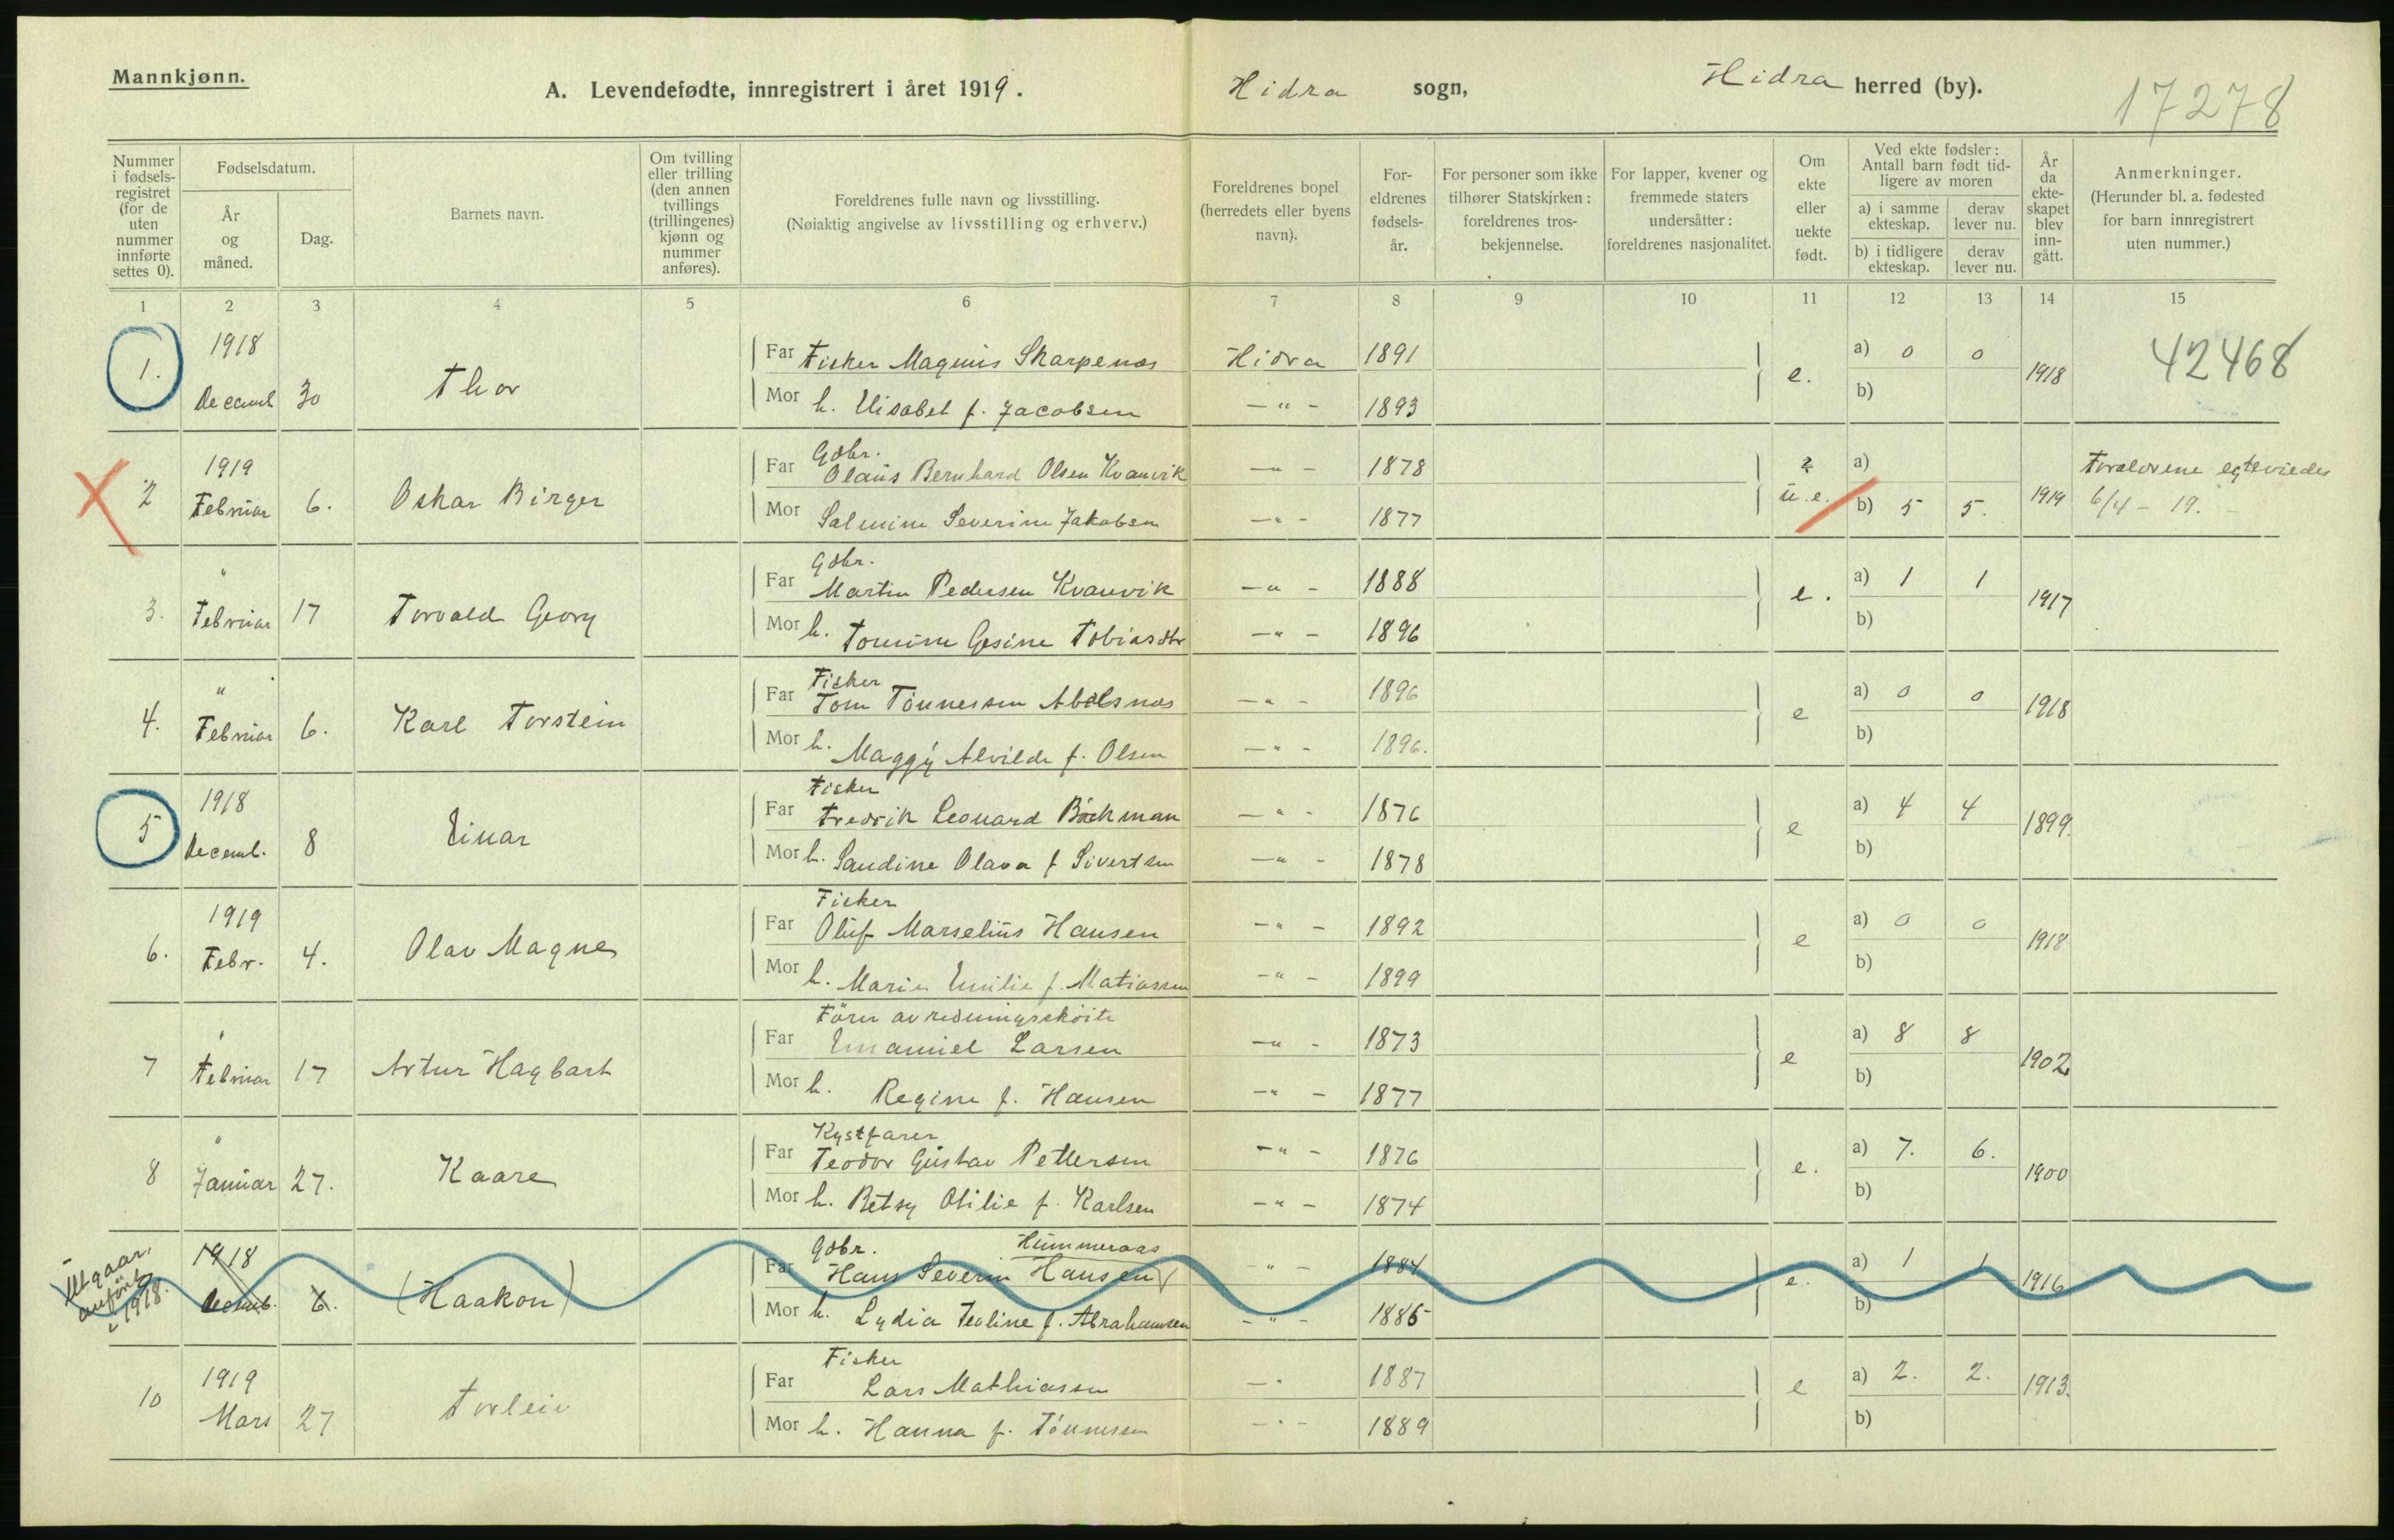 Mannkjønn.
A. Levendefødte, innregistrert i året 1919.
Hidra sogn,
Hidra herred (by).
17278
Nummer i fødsels-registret (for de uten nummer innførte settes 0).
Fødselsdatum.
År og måned.
Dag.
Barnets navn.
Om tvilling eller trilling (den annen tvillings (trillingenes) kjønn og nummer anføres).
Foreldrenes fulle navn og livsstilling.
(Nøiaktig angivelse av livsstilling og erhverv.)
Foreldrenes bopel (herredets eller byens navn).
For-eldrenes fødsels-år.
For personer som ikke tilhører Statskirken: foreldrenes tros-bekjennelse.
For lapper, kvener og fremmede staters undersåtter: foreldrenes nasjonalitet.
Om ekte eller uekte født.
Ved ekte fødsler: Antall barn født tid-ligere av moren
a) i samme ekteskap.
derav lever nu.
b) i tidligere ekteskap.
derav lever nu.
År da ekte-skapet blev inn-gått.
Anmerkninger.
(Herunder bl. a. fødested for barn innregistrert uten nummer.)
1 2 3 4 5 6 7 8 9 10 11 12 13 14 15
1. 1918 Decemb 30 Thor
Far Fisker Magnus Skarpenes Hidra 1891 e. a) 0 0 1918 42468
Mor h. Elisabet f. Jacobsen —"— 1893 b)
2 1919 Februar 6. Oskar Birger
Far Gdbr. Olaus Bernhard Olsen Kvanvik —"— 1878 u.e. a) 1919 Forældrene egteviedes
Mor Salmine Severine Jakobsen —"— 1877 b) 5 5. 6/4 - 19.
3. " Februar 17 Torvald Georg
Far Gdbr. Martin Pedersen Kvanvik —"— 1888 e. a) 1 1 1917
Mor h. Tomine Gesine Tobiasdtr —"— 1896 b)
4. " Februar 6. Karl Torstein
Far Fisker Tom Tönnessen Abelsnes —"— 1896 e a) 0 0 1918
Mor h. Maggy Alvilde f. Olsen —"— 1896. b)
5 1918 Decemb. 8 Einar
Far Fisker Fredrik Leonard Bäckman —"— 1876 e a) 4 4 1899.
Mor h. Sandine Olava f Sivertsen —"— 1878 b)
6. 1919 Febr. 4. Olav Magne
Far Fisker Oluf Marselius Hansen —"— 1892 e a) 0 0 1918
Mor h. Marie Emilie f. Matiassen —"— 1899 b)
7 " Februar 17 Artur Hagbart
Far Förer av redningsskøite Emanuel Larsen —"— 1873 e a) 8 8 1902
Mor h. Regine f. Hansen —"— 1877 b)
8 " Januar 27. Kaare
Far Kystfarer Teodor Gustav Pettersen —"— 1876 e. a) 7. 6. 1900
Mor h. Betsy Otilie f. Karlsen —"— 1874 b)
Utgaar, anført i 1918. 9 1918 Decemb. 6. (Haakon)
Far Gdbr. Hans Severin Hansen Hummeraas —"— 1884 e. a) 1 1 1916
Mor h. Lydia Teoline f. Abrahamsen —"— 1885 b)
10 1919 Mars 27 Torleiv
Far Fisker Lars Mathiassen —"— 1887 e a) 2. 2. 1913.
Mor h. Hanna f. Tönnessen —"— 1889 b)